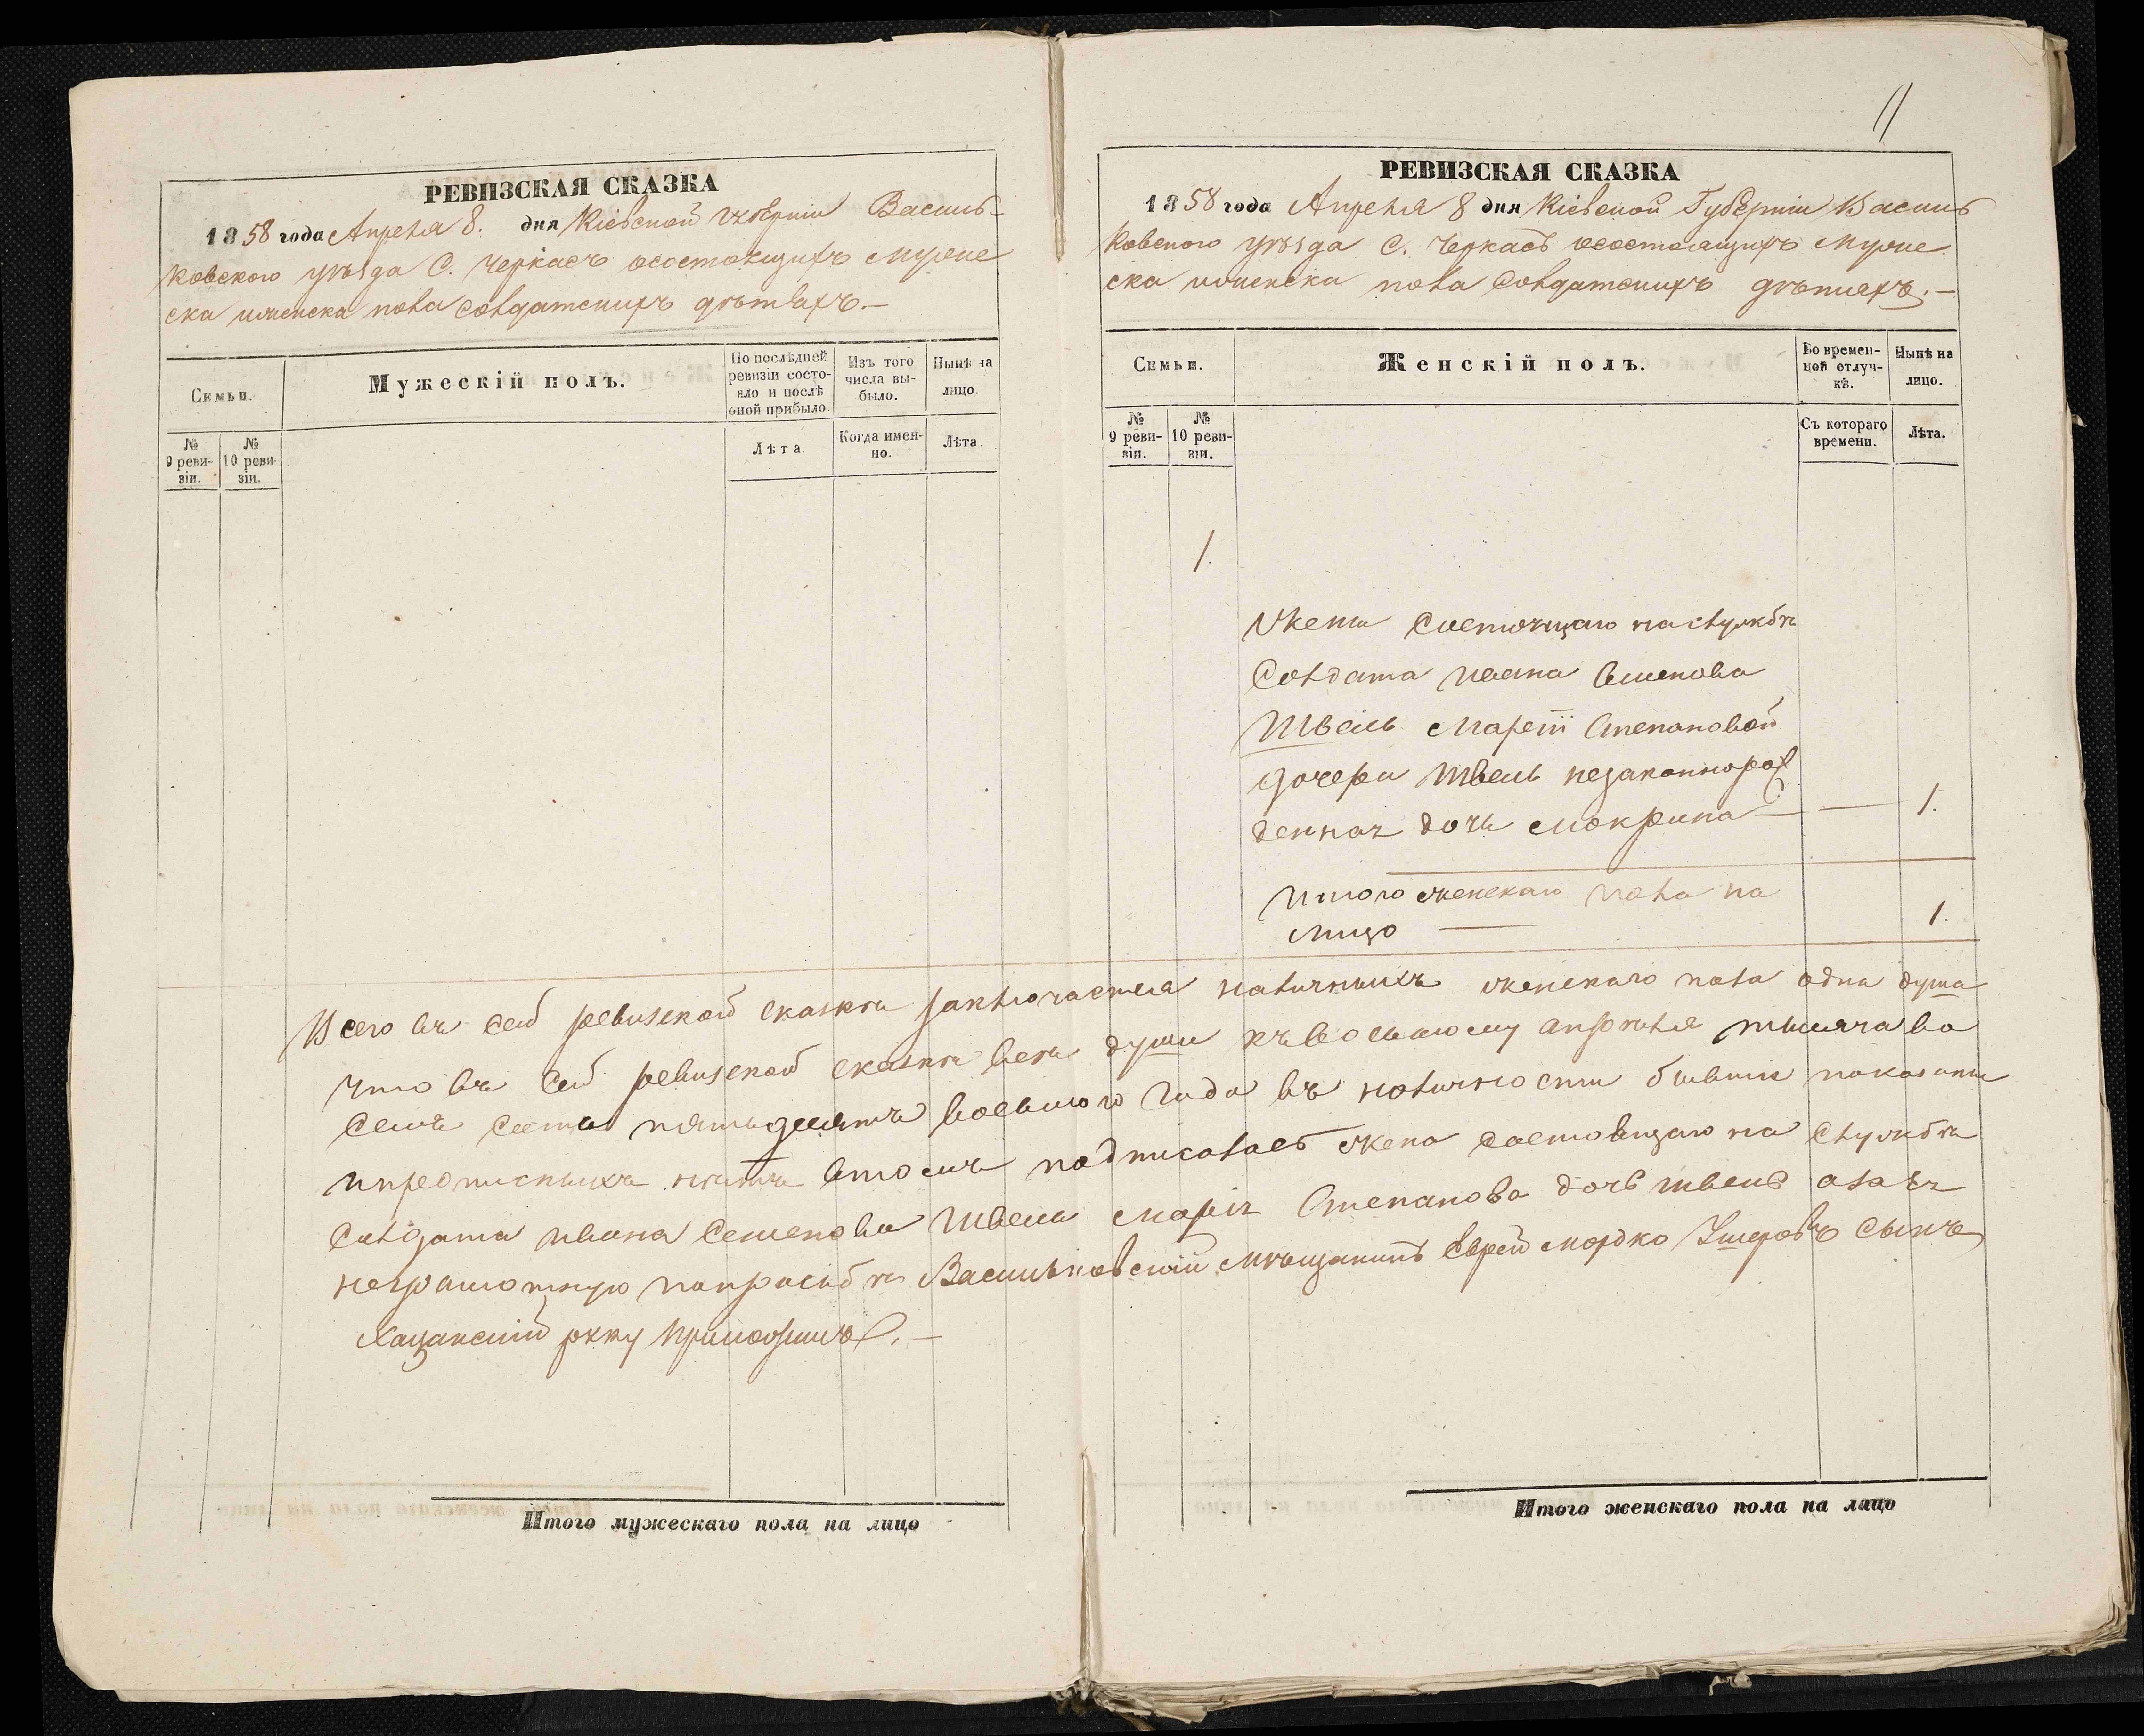 11
РЕВИЗСКАЯ СКАЗКА
1858 года Апреля 8. дня Кіевской Губерніи Василь-
ковского уѣзда С. Черкасъ осостоящихъ Муже
ска иженска пола Солдатскихъ дѣтяхъ.—
Семьи.
Мужескій полъ.
По послѣдней
ревизіи состо-
яло и послѣ
оной прибыло.
Изъ того
числа вы-
было.
Нынѣ на
лицо.
№
9 реви-
зіи.
№
10 реви-
зіи.
Лѣта
Когда имен-
но.
Лѣта.
Итого мужескаго пола на лицо
РЕВИЗСКАЯ СКАЗКА
1858 года Апреля 8 дня Кіевской Губерніи Василь
ковского уѣзда С. Черкасъ осостоящихъ Муже
ска иженска пола Солдатскихъ дѣтяхъ.—
Семьи.
Женскій полъ.
Во времен-
ной отлуч-
кѣ.
Нынѣ на
лицо.
№
9 реви-
зіи.
№
10 реви-
зіи.
Съ котораго
времени.
Лѣта.
1.
Жены Состоящаго наслужбѣ
Солдата Ивана Семенова
Швець Маріи Степановой
дочери Швець незаконнорож
денная дочь Мокрина — — 1.
Итого женскаго пола на
лицо — 1.
Всего въ сей ревизской сказки заключается наличныхъ женскаго пола одна душа
Что въ сей ревизской сказки всѣ души къ восьмому апрѣля тысяча во
семъ сотъ пятьдесятъ восьмого года въ наличности бывшіе показаны
ипрописныхъ нѣтъ втомъ подписалась жена состовщаго на службѣ
Солдата Ивана Семенова Швець Марія Степанова дочь Швець азаеъ
неграмотную попросьбѣ Васильковскій Мѣщанинъ Еврей Мордко Ушеровъ Сынъ
Хацанскій руку приложилъ.—
Итого женскаго пола на лицо